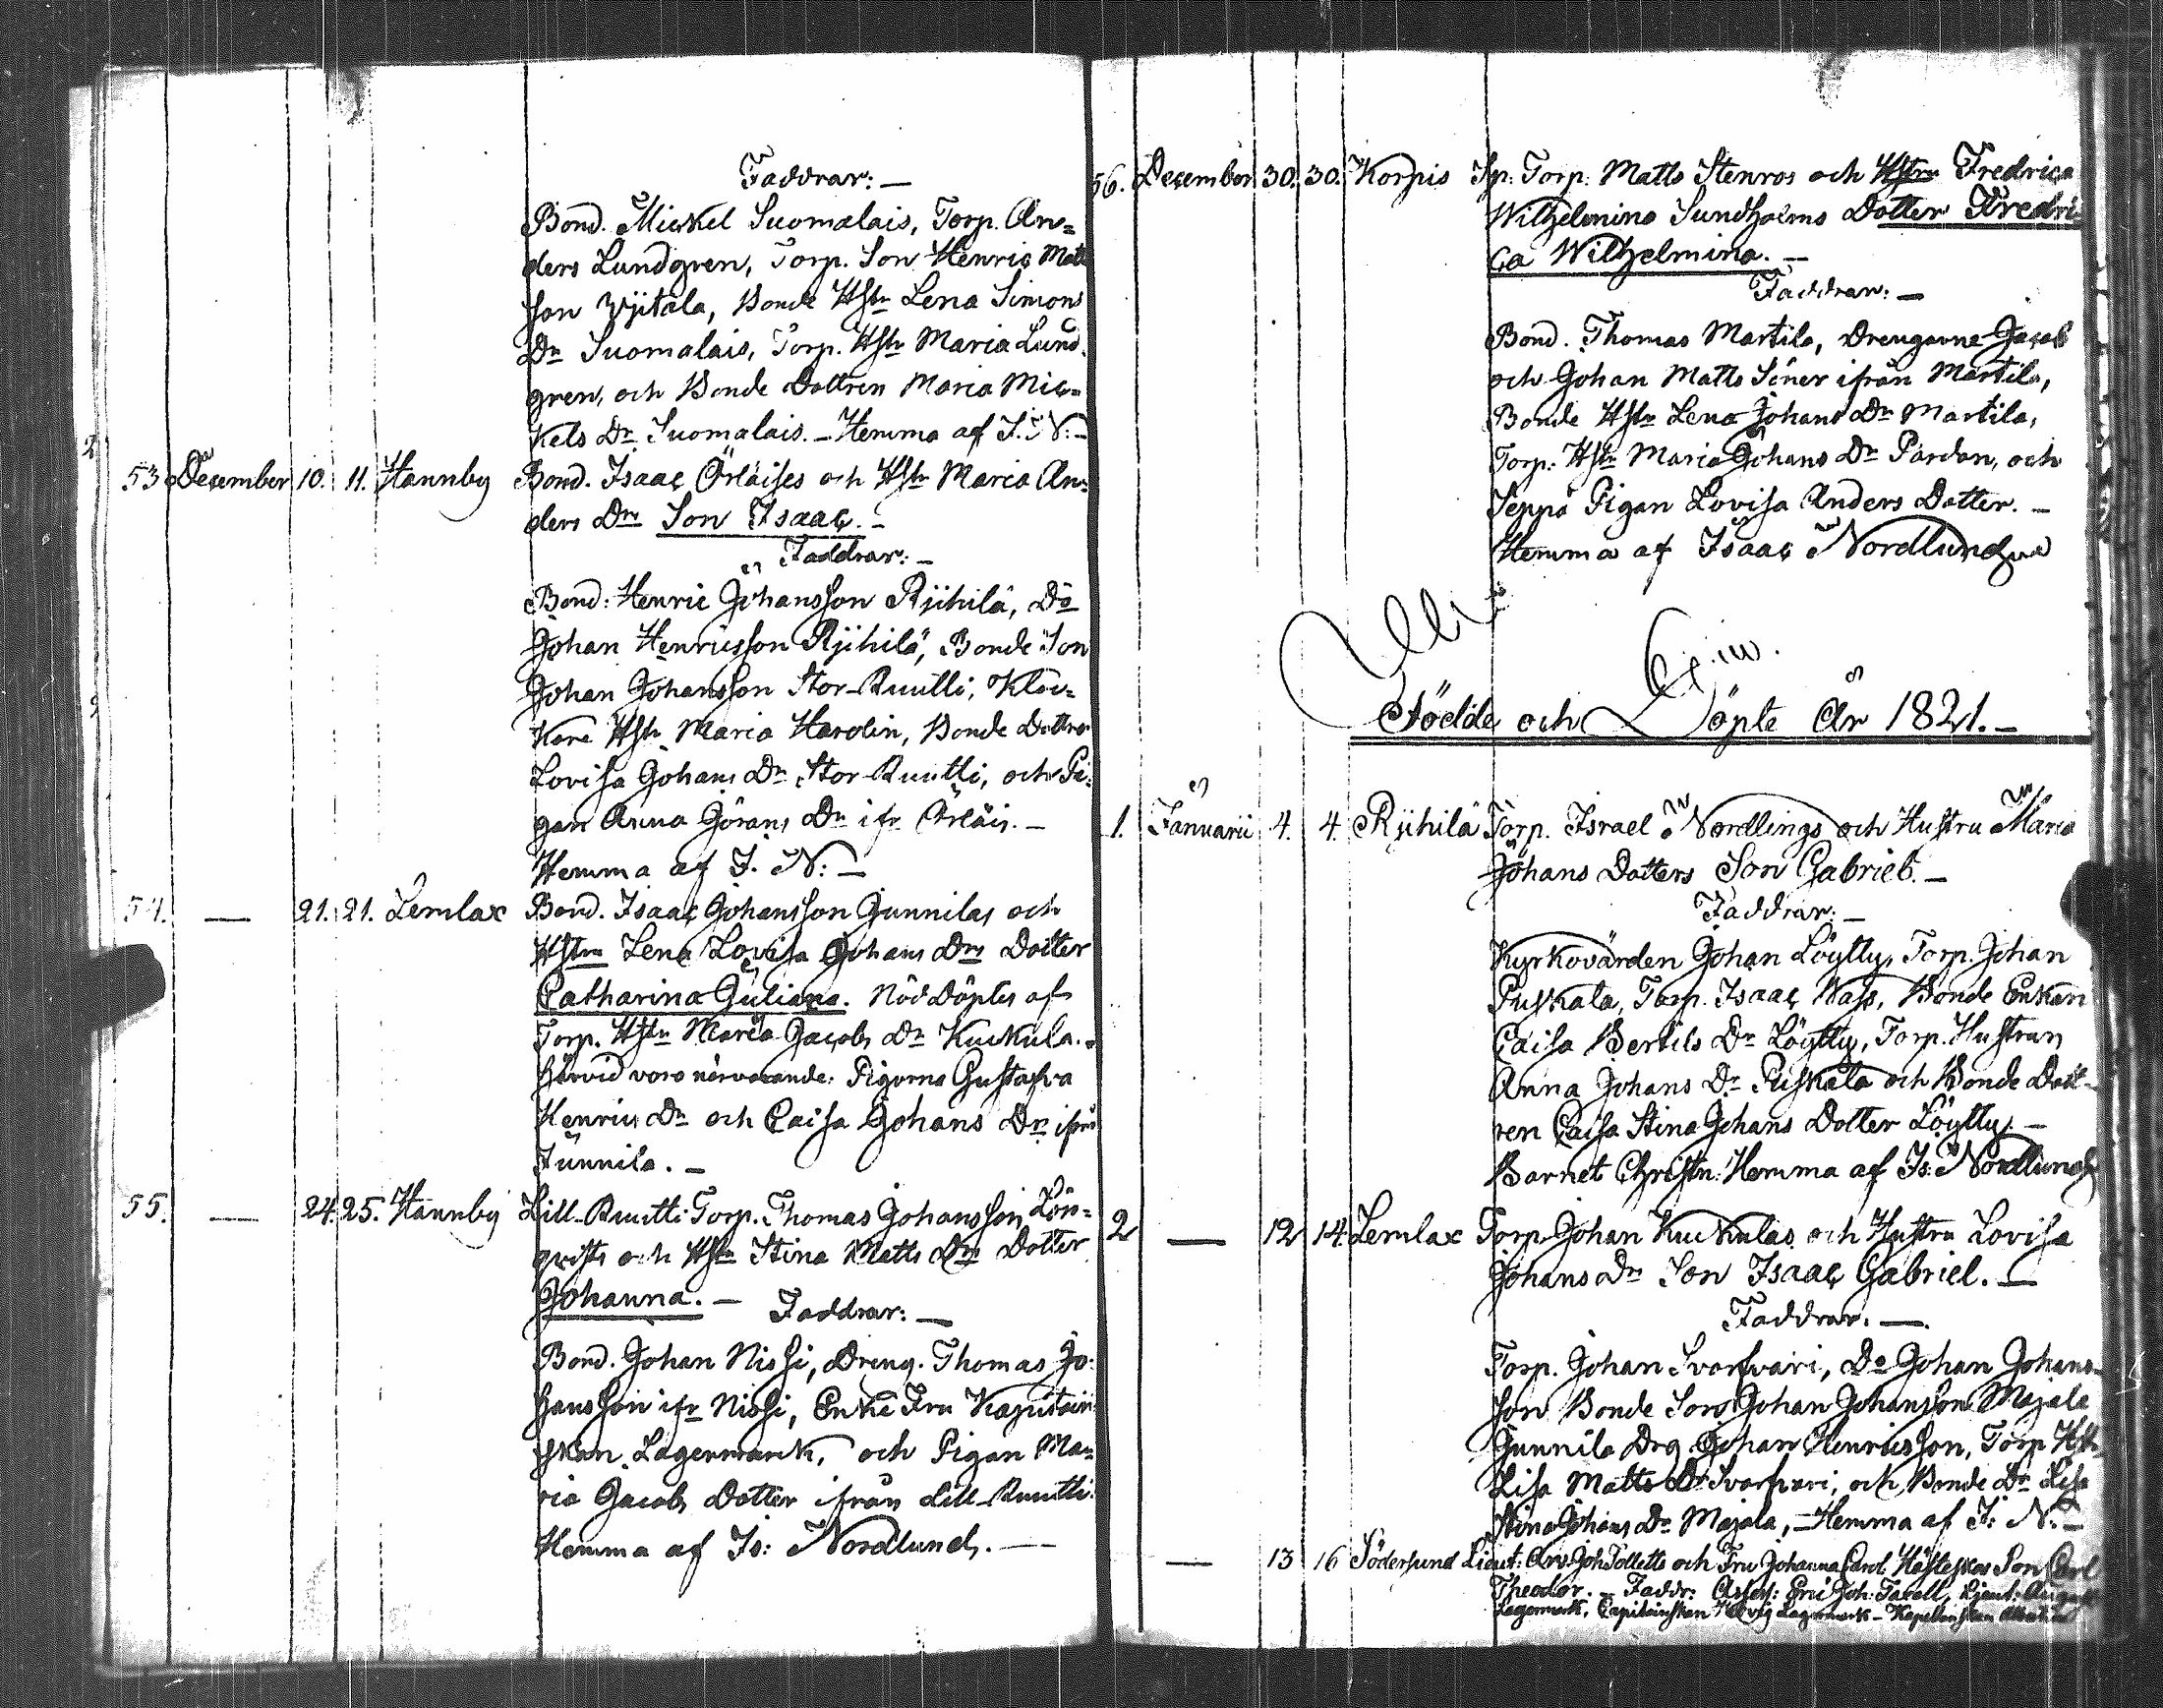 Faddrar: —
Bond. Mickel Suomalais, Torp. An=
ders Lundgren, Torp. Son Henric Mats
son Yjitala, Bonde Hstr Lena Simons
Dr Suomalais, Torp. Hstr Maria Lund.
gren, och Bonde Dottren Maria Mic=
kels Dr Suomalais. — Hemma af I. N: —
53 December 10. 11. Hannby Bond. Isaac Örläises och Hstr Maria An=
ders Drs Son Isaac. —
Faddrar: —
Bond: Henric Johansson Rjihilä, Do
Johan Henricsson Rjihilä, Bonde Son
Johan Johansson Stor-Ruutti, Kloc=
kare Hstr Maria Harolin, Bonde Dottren
Lovisa Johans Dr Stor-Ruutti, och Pi=
gan Anna Görans Dr ifr Örläis. —
Hemma af I. N: —
54. — 21. 21. Lemlax Bond. Isaac Johansson Gunnilas och
Hstrs Lena Lovisa Johans Drs Dotter
Catharina Juliana. Nöd Döptes af
Torp. Hstr Maria Jacobs Dr Kuckula.
Härvid voro närvarande: Pigorna Gustafva
Henrics Dr och Caisa Johans Dr ifrån
Junnila. —
55. — 24. 25. Hannby Lill-Ruutti Torp. Thomas Johansson Lön=
qvists och Hstr Stina Matts Drs Dotter
Johanna. — Faddrar: —
Bond. Johan Nissi, Dreng. Thomas Jo=
hansson ifr Nissi, Enke Fru Kapitain
skan Lagermarck, och Pigan Ma=
ria Jacobs Dotter ifrån Lill-Ruutti.
Hemma af Is: Nordlund. —
56. December 30. 30. Korpis Sp. Torp. Matts Stenros och Hstru Fredrica
Wilhelmina Sundholms Dotter Fredri=
ca Wilhelmina. —
Faddrar: —
Bond. Thomas Martila, Drengarne Jacob
och Johan Matts Söner ifrån Martila,
Bonde Hstr Lena Johans Dr Martila,
Torp. Hstr Maria Johans Dr Pardan, och
Seppä Pigan Lovisa Anders Dotter. —
Hemma af Isaac Nordlund
Födde och Döpte År 1821. —
1. Januarii 4. 4. Rjihilä Torp. Israel Nordlings och Hustru Maria
Johans Dotters Son Gabriel. —
Faddrar: —
Kyrkovärden Johan Löytty, Torp. Johan
Puskala, Torp. Isaac Wass, Bonde Enkan
Caisa Bertils Dr Löytty, Torp. Hustrun
Anna Johans Dr Puskala och Bonde Dott=
ren Caisa Stina Johans Dotter Löytty. —
Barnet Christn: Hemma af Is: Nordlund
2 — 12 14. Lemlax Torp. Johan Kuckulas och Hustru Lovisa
Johans Dr Son Isaac Gabriel. —
Faddrar. —
Torp. Johan Svarfvari, Do Johan Johans=
son Bonde Son Johan Johansson Majala
Gunnila Drg Johan Henricsson, Torp Hstr
Lisa Matts Dr Svarfvari, och Bonde Dr Lisa
Stina Johans Dr Majala, — Hemma af I. N. —
— 13 16 Södersund Lieut: Joh Tolletts och Fru Johanna Carol Hästeskos Son Carl
Theodor. — Faddr: Assess: Eric Joh: Taxell, Lieut: August
Lagermark, Capitainskan Hedvig Lagermark —